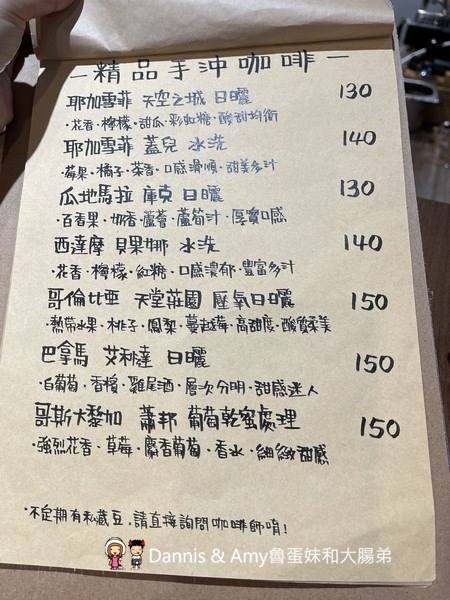 －精品手沖咖啡－
耶加雪菲 天空之城 日曬 130
·花香·檸檬·甜瓜·彩虹糖·酸甜均衡
耶加雪菲 蓋兒 水洗 140
·蘋果·橘子·茶香·口感滑順·甜美多汁
瓜地馬拉 庫克 日曬 130
·百香果·奶香·蘆薈·蘆筍汁·厚實口感
西達摩 貝果娜 水洗 140
·花香·檸檬·紅糖·口感濃郁·豐富多汁
哥倫比亞 天堂莊園 厭氧日曬 150
·熱帶水果·桃子·鳳梨·蔓越莓·高甜度·酸質柔美
巴拿馬 艾利達 日曬 150
·白葡萄·香檳·雞尾酒·層次分明·甜感迷人
哥斯大黎加 蕭邦 葡萄乾蜜處理 150
·強烈花香·草莓·麝香葡萄·香水·細緻甜感
·不定期有私藏豆,請直接詢問咖啡師唷!
Dannis & Amy魯蛋妹和大腸弟